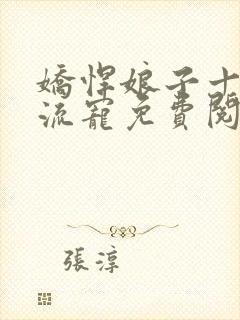 嬌悍娘子十
流寵免費閱
張淳